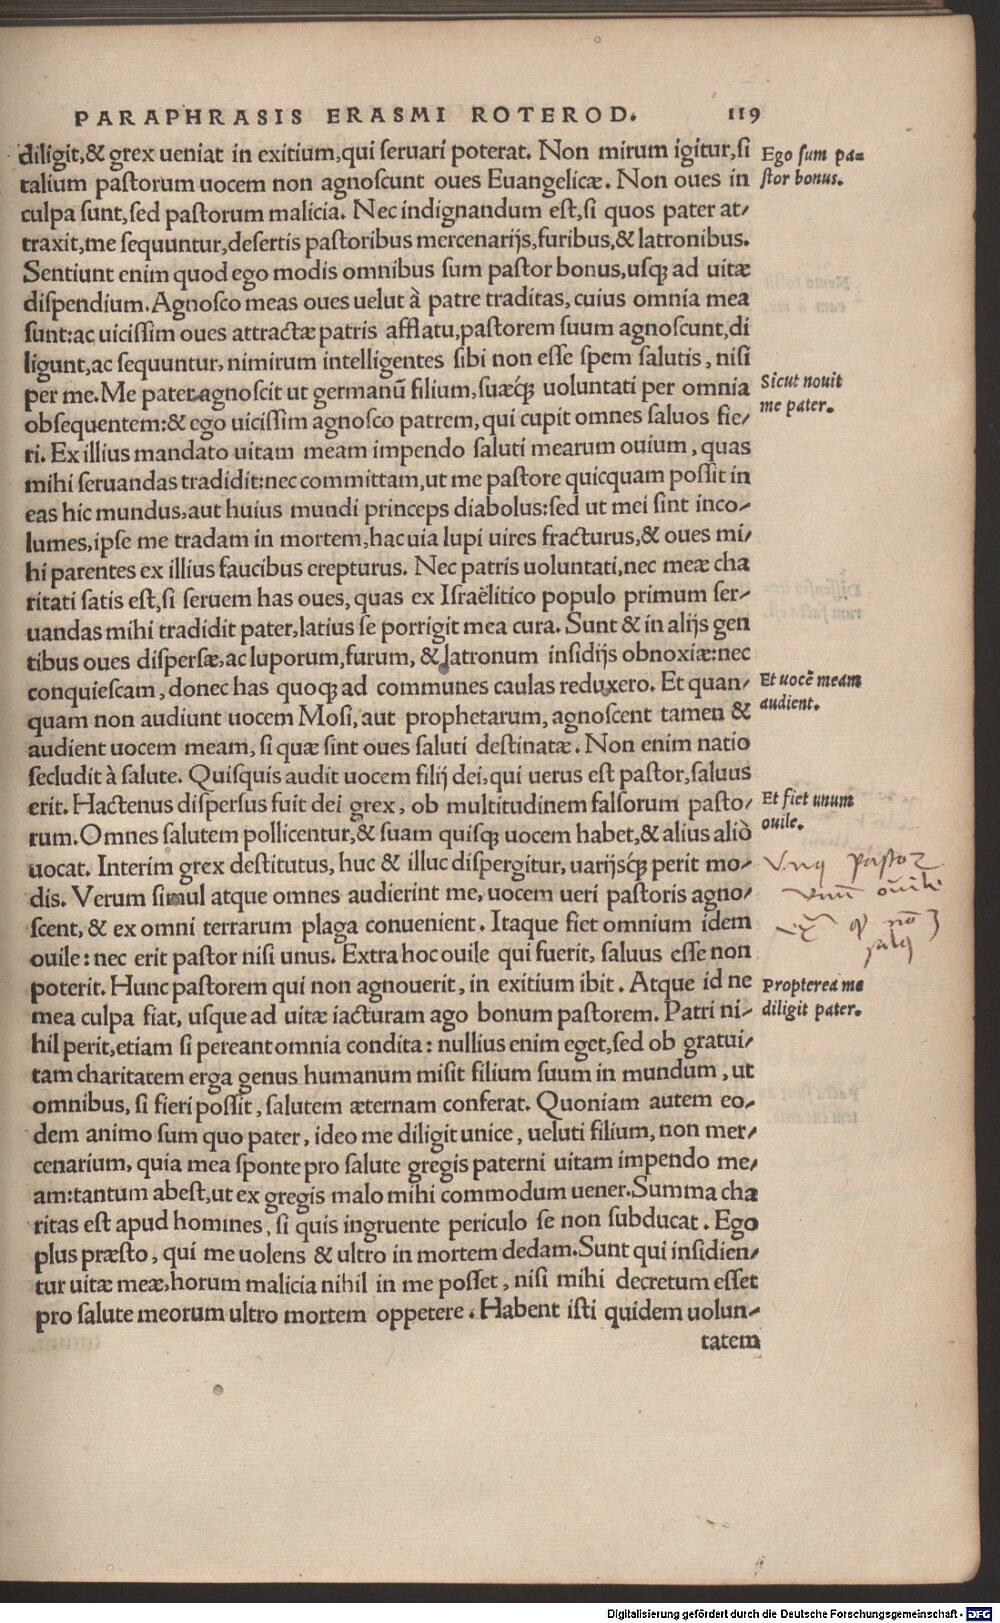 PARAPHRASIS ERASMI ROTEROD. 119
diligit,& grex ueniat in exitium,qui seruari poterat. Non mirum igitur,si
Ego sum pa=
talium pastorum uocem non agnoscunt oues Euangelicæ. Non oues in
stor bonus.
culpa sunt,sed pastorum malicia. Nec indignandum est,si quos pater at/
traxit,me sequuntur,desertis pastoribus mercenarijs,furibus,& latronibus.
Sentiunt enim quod ego modis omnibus sum pastor bonus,usq; ad uitæ
dispendium.Agnosco meas oues uelut à patre traditas, cuius omnia mea
sunt:ac uicissim oues attractæ patris afflatu,pastorem suum agnoscunt,di
ligunt,ac sequuntur, nimirum intelligentes sibi non esse spem salutis, nisi
per me.Me pater agnoscit ut germanū filium,suæq́; uoluntati per omnia
Sicut nouit
obsequentem:& ego uicissim agnosco patrem,qui cupit omnes saluos fie/
me pater.
ri. Ex illius mandato uitam meam impendo saluti mearum ouium, quas
mihi seruandas tradidit:nec committam,ut me pastore quicquam possit in
eas hic mundus,aut huius mundi princeps diabolus:sed ut mei sint inco/
lumes,ipse me tradam in mortem,hac uia lupi uires fracturus,& oues mi/
hi parentes ex illius faucibus erepturus. Nec patris uoluntati,nec meæ cha
ritati satis est,si seruem has oues, quas ex Israëlitico populo primum ser/
uandas mihi tradidit pater,latius se porrigit mea cura. Sunt & in alijs gen
tibus oues dispersæ,ac luporum,furum, & latronum insidijs obnoxiæ:nec
conquiescam, donec has quoq; ad communes caulas reduxero. Et quan/
Et uocē meam
quam non audiunt uocem Mosi, aut prophetarum, agnoscent tamen &
audient.
audient uocem meam, si quæ sint oues saluti destinatæ. Non enim natio
secludit à salute. Quisquis audit uocem filij dei,qui uerus est pastor,saluus
erit. Hactenus dispersus fuit dei grex, ob multitudinem falsorum pasto/
Et fiet unum
rum.Omnes salutem pollicentur,& suam quisq; uocem habet,& alius aliò
ouile.
uocat. Interim grex destitutus, huc & illuc dispergitur, uarijsq́; perit mo/
dis. Verum simul atque omnes audierint me, uocem ueri pastoris agno/
scent, & ex omni terrarum plaga conuenient. Itaque fiet omnium idem
ouile: nec erit pastor nisi unus. Extra hoc ouile qui fuerit, saluus esse non
pastor
poterit. Hunc pastorem qui non agnouerit, in exitium ibit. Atque id ne
Propterea me
mea culpa fiat, usque ad uitæ iacturam ago bonum pastorem. Patri ni/
diligit pater.
hil perit,etiam si pereant omnia condita: nullius enim eget,sed ob gratui/
tam charitatem erga genus humanum misit filium suum in mundum, ut
omnibus, si fieri possit, salutem æternam conferat. Quoniam autem eo/
dem animo sum quo pater, ideo me diligit unice, ueluti filium, non mer/
cenarium, quia mea sponte pro salute gregis paterni uitam impendo me/
am:tantum abest,ut ex gregis malo mihi commodum uener.Summa cha
ritas est apud homines, si quis ingruente periculo se non subducat. Ego
plus præsto, qui me uolens & ultro in mortem dedam.Sunt qui insidien/
tur uitæ meæ,horum malicia nihil in me posset, nisi mihi decretum esset
pro salute meorum ultro mortem oppetere. Habent isti quidem uolun/
tatem
Digitalisierung gefördert durch die Deutsche Forschungsgemeinschaft - DFG